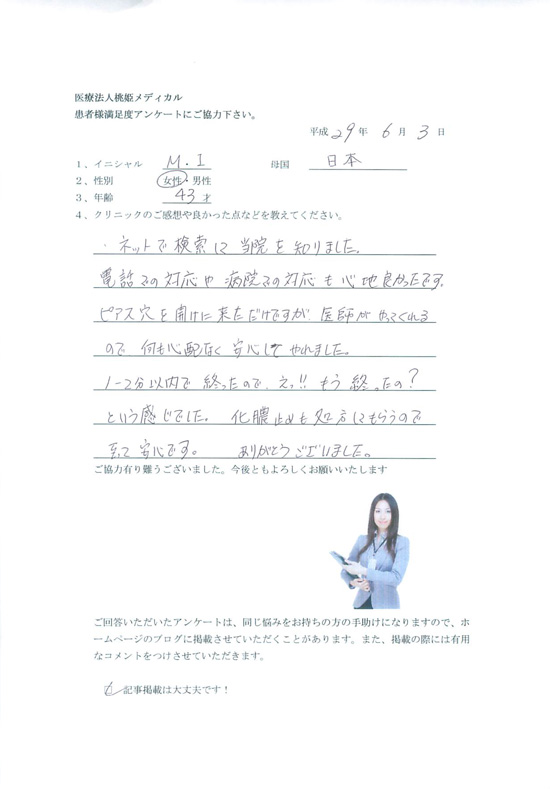 医療法人桃姫メディカル
患者様満足度アンケートにご協力下さい。
平成 29 年 6 月 3 日
1、イニシャル M.I 母国 日本
2、性別 女性・男性
3、年齢 43 才
4、クリニックのご感想や良かった点などを教えてください。
・ネットで検索して当院を知りました。
電話での対応や病院での対応も心地良かったです。
ピアス穴を開けに来ただけですが、医師がやってくれる
ので何も心配なく安心してやれました。
1-2分以内で終ったので、えっ!!もう終ったの?
という感じでした。化膿止めも処方してもらうので
至って安心です。 ありがとうございました。
ご協力有り難うございました。今後ともよろしくお願いいたします
ご回答いただいたアンケートは、同じ悩みをお持ちの方の手助けになりますので、ホ
ームページのブログに掲載させていただくことがあります。また、掲載の際には有用
なコメントをつけさせていただきます。
記事掲載は大丈夫です!